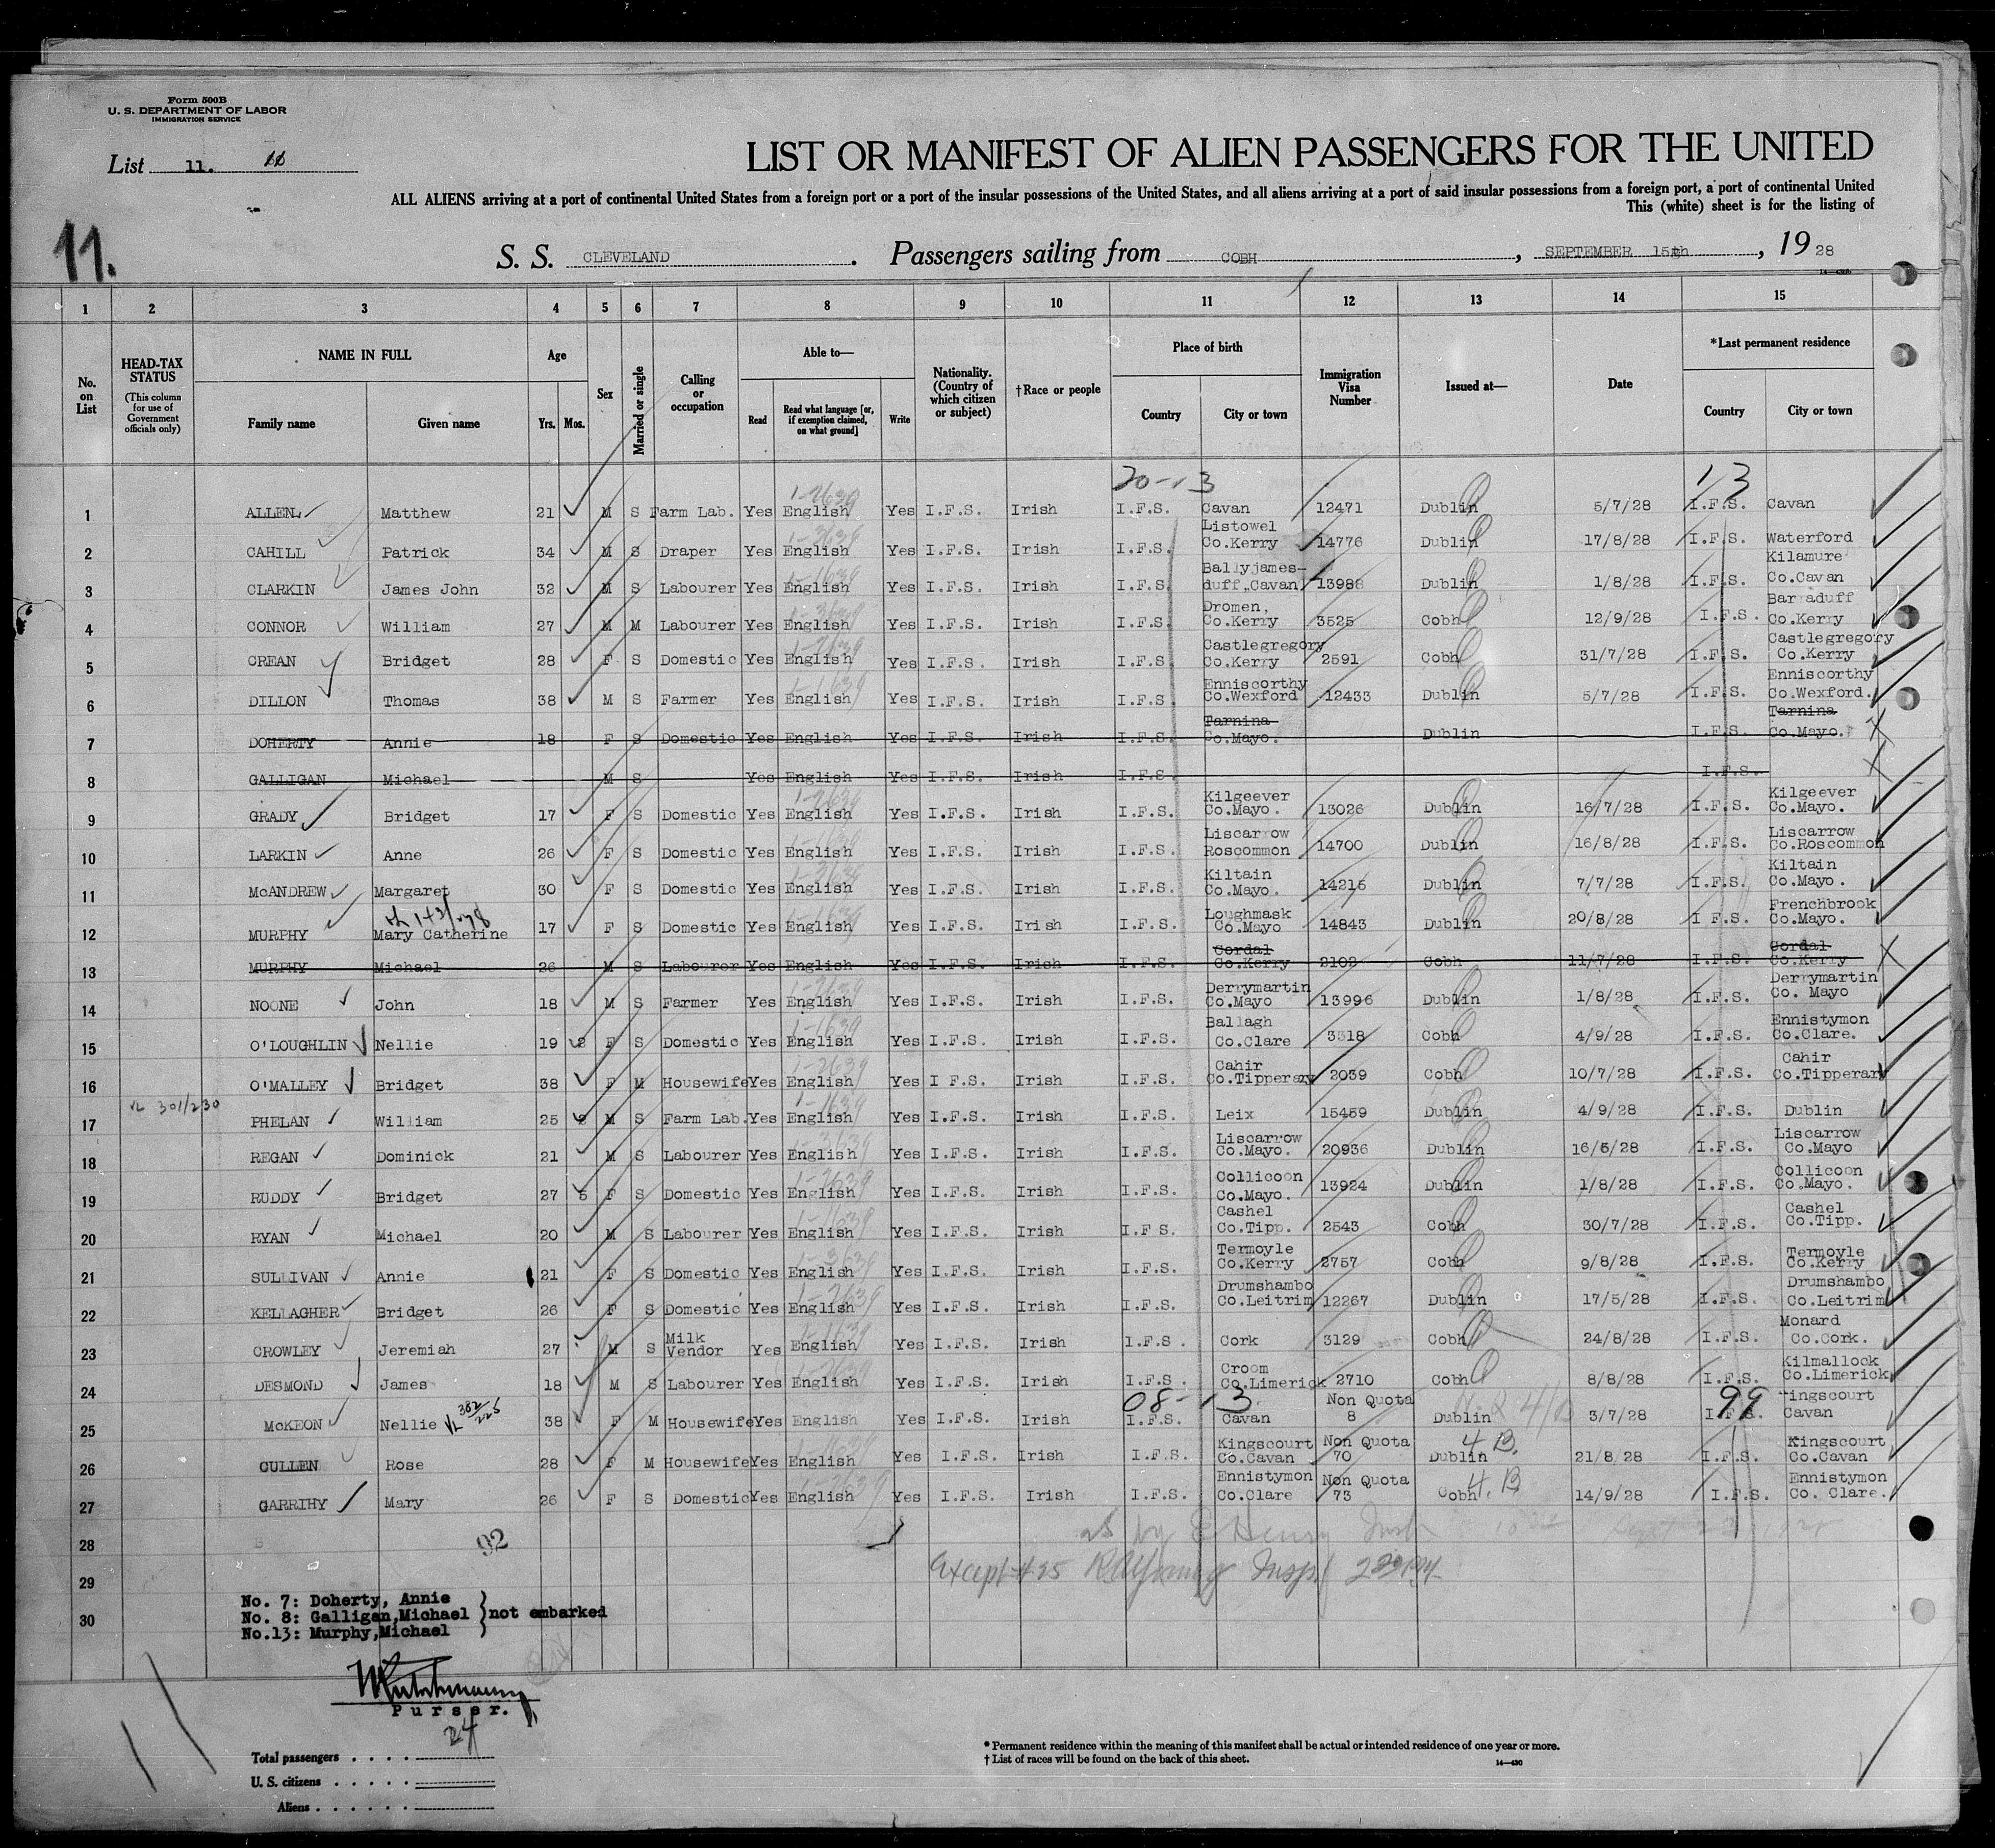 Form 500B
U. S. DEPARTMENT OF LABOR
IMMIGRATION SERVICE
List 11. 11
LIST OR MANIFEST OF ALIEN PASSENGERS FOR THE UNITED
ALL ALIENS arriving at a port of continental United States from a foreign port or a port of the insular possessions of the United States, and all aliens arriving at a port of said insular possessions from a foreign port, a port of continental United
This (white) sheet is for the listing of
11.
S. S. CLEVELAND. Passengers sailing from COBH, SEPTEMBER 15th, 19 28
1 2 3 4 5 6 7 8 9 10 11 12 13 14 15
No. on List
HEAD-TAX STATUS (This column for use of Government officials only)
NAME IN FULL Family name Given name
Age Yrs. Mos.
Sex
Married or single
Calling or occupation
Able to— Read Read what language [or, if exemption claimed, on what ground] Write
Nationality. (Country of which citizen or subject)
†Race or people
Place of birth Country City or town
Immigration Visa Number
Issued at—
Date
*Last permanent residence Country City or town
1 ALLEN Matthew 21 M S Farm Lab. Yes English Yes I.F.S. Irish I.F.S. Cavan 12471 Dublin 5/7/28 I.F.S. Cavan
2 CAHILL Patrick 34 M S Draper Yes English Yes I.F.S. Irish I.F.S. Listowel Co.Kerry 14776 Dublin 17/8/28 I.F.S. Waterford
3 CLARKIN James John 32 M S Labourer Yes English Yes I.F.S. Irish I.F.S. Ballyjames-duff,Cavan 13988 Dublin 1/8/28 I.F.S. Kilamure Co.Cavan
4 CONNOR William 27 M M Labourer Yes English Yes I.F.S. Irish I.F.S. Dromen, Co.Kerry 3525 Cobh 12/9/28 I.F.S. Barraduff Co.Kerry
5 CREAN Bridget 28 F S Domestic Yes English Yes I.F.S. Irish I.F.S. Castlegregory Co.Kerry 2591 Cobh 31/7/28 I.F.S. Castlegregory Co.Kerry
6 DILLON Thomas 38 M S Farmer Yes English Yes I.F.S. Irish I.F.S. Enniscorthy Co.Wexford 12433 Dublin 5/7/28 I.F.S. Enniscorthy Co.Wexford.
7 DOHERTY Annie 18 F S Domestic Yes English Yes I.F.S. Irish I.F.S. Tarnina Co.Mayo. Dublin I.F.S. Tarnina Co.Mayo.
8 GALLIGAN Michael M S Yes English Yes I.F.S. Irish I.F.S. I.F.S.
9 GRADY Bridget 17 F S Domestic Yes English Yes I.F.S. Irish I.F.S. Kilgeever Co.Mayo. 13026 Dublin 16/7/28 I.F.S. Kilgeever Co.Mayo.
10 LARKIN Anne 26 F S Domestic Yes English Yes I.F.S. Irish I.F.S. Liscarrow Roscommon 14700 Dublin 16/8/28 I.F.S. Liscarrow Co.Roscommon
11 McANDREW Margaret 30 F S Domestic Yes English Yes I.F.S. Irish I.F.S. Kiltain Co.Mayo. 14215 Dublin 7/7/28 I.F.S. Kiltain Co.Mayo.
12 MURPHY Mary Catherine 17 F S Domestic Yes English Yes I.F.S. Irish I.F.S. Loughmask Co.Mayo 14843 Dublin 20/8/28 I F.S. Frenchbrook Co.Mayo.
13 MURPHY Michael 26 M S Labourer Yes English Yes I.F.S. Irish I.F.S. Cordal Co.Kerry 2102 Cobh 11/7/28 I.F.S. Cordal Co.Kerry
14 NOONE John 18 M S Farmer Yes English Yes I.F.S. Irish I.F.S. Derrymartin Co.Mayo 13996 Dublin 1/8/28 I.F.S. Derrymartin Co. Mayo
15 O'LOUGHLIN Nellie 19 F S Domestic Yes English Yes I.F.S. Irish I.F.S. Ballagh Co.Clare 3318 Cobh 4/9/28 I.F.S. Ennistymon Co.Clare.
16 O'MALLEY Bridget 38 F M Housewife Yes English Yes I F.S. Irish I.F.S. Cahir Co.Tipperary 2039 Cobh 10/7/28 I.F.S. Cahir Co.Tipperary
17 301/230 PHELAN William 25 M S Farm Lab. Yes English Yes I.F.S. Irish I.F.S. Leix 15459 Dublin 4/9/28 I.F.S. Dublin
18 REGAN Dominick 21 M S Labourer Yes English Yes I.F.S. Irish I.F.S. Liscarrow Co.Mayo. 20936 Dublin 16/5/28 I.F.S. Liscarrow Co.Mayo
19 RUDDY Bridget 27 5 F S Domestic Yes English Yes I.F.S. Irish I.F.S. Collicoon Co.Mayo. 13924 Dublin 1/8/28 I.F.S. Collicoon Co.Mayo.
20 RYAN Michael 20 M S Labourer Yes English Yes I.F.S. Irish I.F S. Cashel Co.Tipp. 2543 Cobh 30/7/28 I.F.S. Cashel Co.Tipp.
21 SULLIVAN Annie 21 F S Domestic Yes English Yes I.F.S. Irish I.F.S. Termoyle Co.Kerry 2757 Cobh 9/8/28 I.F.S. Termoyle Co.Kerry
22 KELLAGHER Bridget 26 F S Domestic Yes English Yes I.F.S. Irish I.F.S. Drumshambo Co.Leitrim 12267 Dublin 17/5/28 I.F.S. Drumshambo Co.Leitrim
23 CROWLEY Jeremiah 27 M S Milk Vendor Yes English Yes I.F.S. Irish I.F.S. Cork 3129 Cobh 24/8/28 I.F.S. Monard Co.Cork.
24 DESMOND James 18 M S Labourer Yes English Yes I.F.S. Irish I.F.S. Croom Co.Limerick 2710 Cobh 8/8/28 I.F.S. Kilmallock Co.Limerick
25 McKEON Nellie 38 F M Housewife Yes English Yes I.F.S. Irish I.F.S. Cavan Non Quota 8 Dublin 3/7/28 I.F.S. Kingscourt Cavan
26 CULLEN Rose 28 F M Housewife Yes English Yes I.F.S. Irish I.F.S. Kingscourt Co.Cavan Non Quota 70 Dublin 4 B. 21/8/28 I.F.S. Kingscourt Co.Cavan
27 GARRIHY Mary 26 F S Domestic Yes English Yes I.F.S. Irish I.F.S. Ennistymon Co.Clare Non Quota 73 Cobh 4. B 14/9/28 I.F.S. Ennistymon Co. Clare.
28 92
29 Except #25
30
No. 7: Doherty, Annie
No. 8: Galligan,Michael } not embarked
No.13: Murphy,Michael
Purser.
24
Total passengers . . . .
U. S. citizens . . . . .
Aliens . . . . . .
* Permanent residence within the meaning of this manifest shall be actual or intended residence of one year or more.
† List of races will be found on the back of this sheet.
14—430